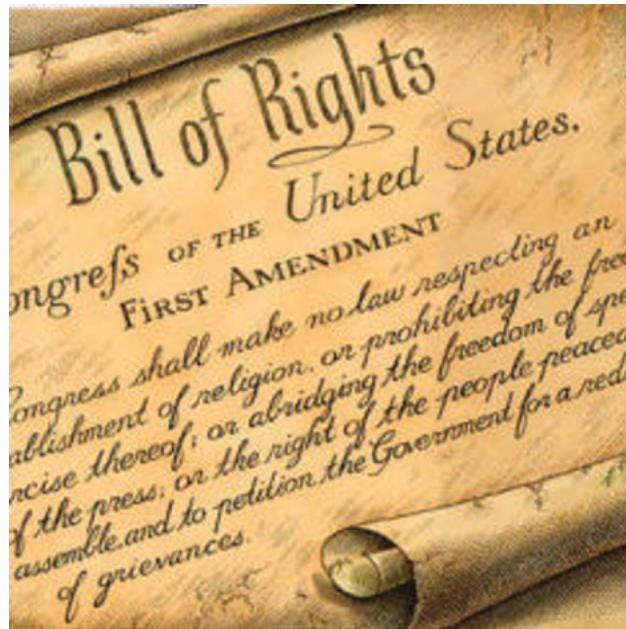 Bill of Rights
ongreſs OF THE United States.
FIRST AMENDMENT
Congress shall make no law respecting an
ablishment of religion, or prohibiting the free
rcise thereof; or abridging the freedom of spe
of the press; or the right of the people peacea
assemble, and to petition the Government for a red
of grievances.